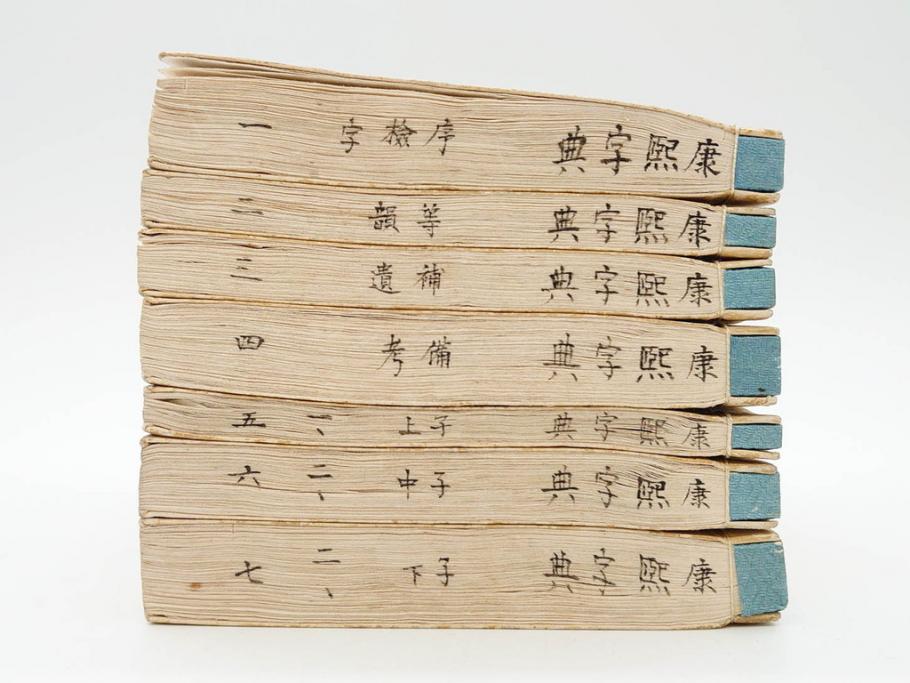 康熙字典 序檢字 一
康熙字典 等韻 二
康熙字典 補遺 三
康熙字典 備考 四
康熙字典 子上 一、 五
康熙字典 子中 二、 六
康熙字典 子下 二、 七